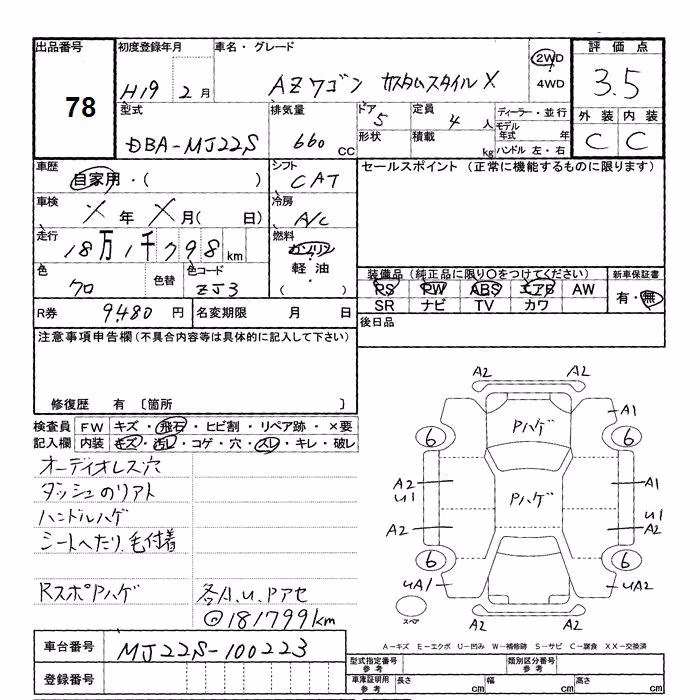 出品番号 初度登録年月 車名・グレード 評価点
78
H19年 2月 AZワゴン カスタムスタイルX 2WD 4WD 3.5
型式 排気量 ドア 定員 ディーラー・並行 外装 内装
DBA-MJ22S 660 CC 5 4人 モデル年式 年 C C
形状 積載 kg ハンドル 左・右
車歴 シフト セールスポイント (正常に機能するものに限ります)
自家用・( ) CAT
車検 冷房
X年 X月( 日) A/C
走行 燃料
18万1千798km ガソリン
軽油
( )
色 色替 色コード 装備品 (純正品に限り○をつけてください) 新車保証書
クロ ZJ3 PS PW ABS エアB AW 有・無
SR ナビ TV カワ
R券 9,480円 名変期限 月 日 後日品
注意事項申告欄(不具合内容等は具体的に記入して下さい)
修復歴 有 〔箇所 〕
検査員 FW キズ・飛石・ヒビ割・リペア跡・×要
記入欄 内装 キズ・汚レ・コゲ・穴・スレ・キレ・破レ
オーディオレス穴
ダッシュのりアト
ハンドルハゲ
シートへたり、毛付着
RスポPハゲ 各A.U.Pアセ
181799km
A2 A2
A1
Pハゲ
6 6
A2 U1 Pハゲ A1
A2 U1 A2
6 6
UA1 UA2
スペア A2 A2
A-キズ E-エクボ U-凹み W-補修跡 S-サビ C-腐食 XX-交換済
車台番号 MJ22S-100223
型式指定番号 参考 類別区分番号 参考
登録番号 車庫証明用 参考 長さ cm 幅 cm 高さ cm